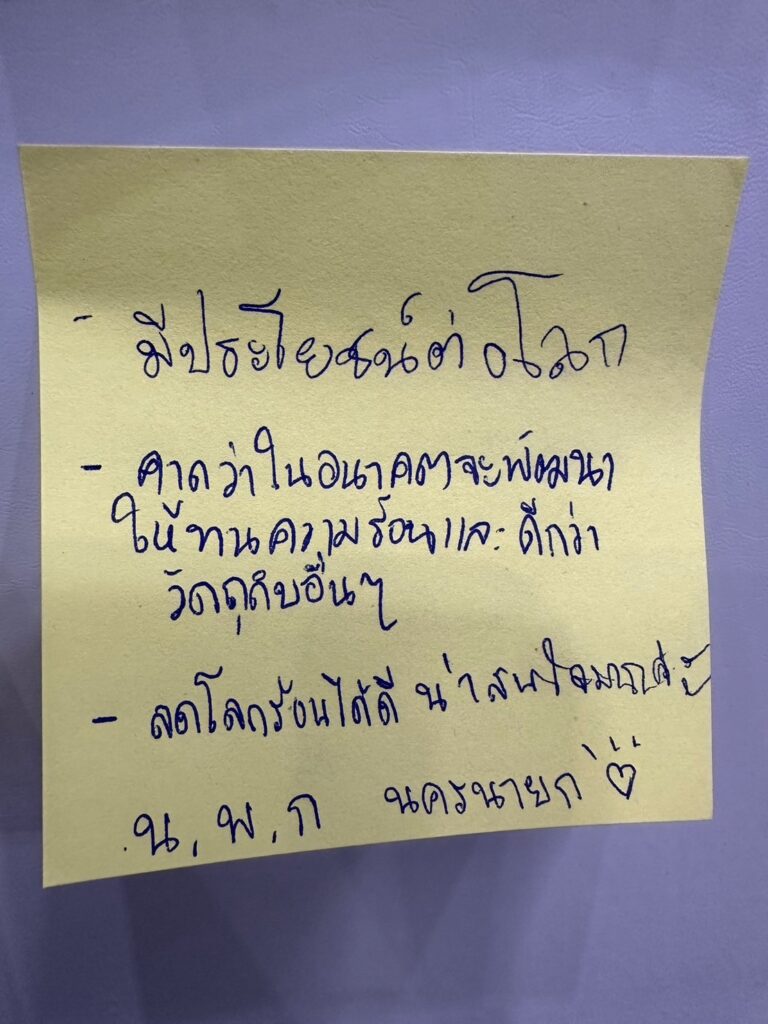 - มีประโยชน์ต่อโลก
- คาดว่าในอนาคตจะพัฒนา
ให้ทนความร้อนและดีกว่า
วัตถุดิบอื่นๆ
- ลดโลกร้อนได้ดี น่าสนใจมากค่ะ
น.พ.ก นครนายก ♡